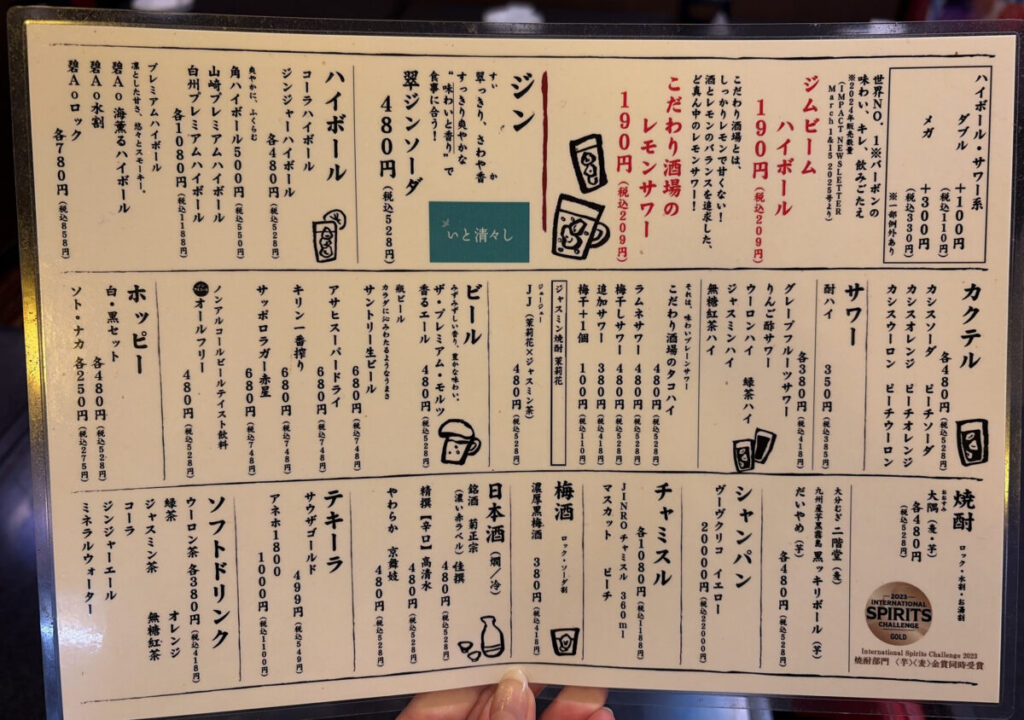 ハイボール・サワー系
ダブル +100円
(税込110円)
メガ +300円
(税込330円)
※一部例外あり
世界NO.1※バーボンの
味わい、キレ、飲みごたえ
※2024年販売数量
(IMPACT NEWSLETTER
March 1&15 2025号より)
ジムビーム
ハイボール
190円(税込209円)
こだわり酒場とは、
しっかりレモンで甘くない!
酒とレモンのバランスを追求した、
ど真ん中のレモンサワー!
こだわり酒場の
レモンサワー
190円(税込209円)
ジン
すい か
翠っきり、さわや香
すっきり爽やかな
“味わいと香り”で
食事に合う!
翠ジンソーダ
480円(税込528円)
いと清々し
ハイボール
コーラハイボール
ジンジャーハイボール
各480円(税込528円)
爽やかに、ふくらむ
角ハイボール500円(税込550円)
山崎プレミアムハイボール
白州プレミアムハイボール
各1080円(税込1188円)
プレミアムハイボール
凛とした甘さ、悠々とスモーキー。
碧Ao 海薫るハイボール
碧Ao水割
碧Aoロック
各780円(税込858円)
カクテル
各480円(税込528円)
カシスソーダ ピーチソーダ
カシスオレンジ ピーチオレンジ
カシスウーロン ピーチウーロン
サワー
酎ハイ 350円(税込385円)
各380円(税込418円)
グレープフルーツサワー
りんご酢サワー
ウーロンハイ 緑茶ハイ
ジャスミンハイ
無糖紅茶ハイ
それは、味わいプレーンサワー
こだわり酒場のタコハイ
480円(税込528円)
ラムネサワー 480円(税込528円)
梅干しサワー 480円(税込528円)
追加サワー 380円(税込418円)
梅干+1個 100円(税込110円)
ジャスミン焼酎 茉莉花
ジェージェー
JJ(茉莉花×ジャスミン茶)
480円(税込528円)
ビール
みずみずしい香り、豊かな味わい。
ザ・プレミアム・モルツ
香るエール 480円(税込528円)
瓶ビール
カラダに沁みわたるようなうまさ
サントリー生ビール
680円(税込748円)
アサヒスーパードライ
680円(税込748円)
キリン一番搾り
680円(税込748円)
サッポロラガー赤星
680円(税込748円)
ノンアルコールビールテイスト飲料
オールフリー
480円(税込528円)
ホッピー
白・黒セット
各480円(税込528円)
ソト・ナカ 各250円(税込275円)
焼酎 ロック・水割・お湯割
おおすみ
大隅(麦・芋)
各480円
(税込528円)
2023
INTERNATIONAL
SPIRITS
CHALLENGE
GOLD
International Spirits Challenge 2023
焼酎部門 〈芋〉〈麦〉金賞同時受賞
大分むぎ 二階堂(麦)
九州産芋黒霧島 黒ッキリボール(芋)
だいやめ(芋)
各480円(税込528円)
シャンパン
ヴーヴクリコ イエロー
20000円(税込22000円)
チャミスル
各1080円(税込1188円)
JINROチャミスル 360ml
マスカット ピーチ
梅酒 ロック・ソーダ割
濃厚黒梅酒 380円(税込418円)
日本酒(燗/冷)
銘酒 菊正宗 佳撰
(濃い赤ラベル) 480円(税込528円)
精撰【辛口】高清水
480円(税込528円)
やわらか 京舞妓
480円(税込528円)
テキーラ
サウザゴールド
499円(税込549円)
アネホ1800
1000円(税込1100円)
ソフトドリンク
ウーロン茶 各380円(税込418円)
緑茶 オレンジ
ジャスミン茶 無糖紅茶
コーラ
ジンジャーエール
ミネラルウォーター